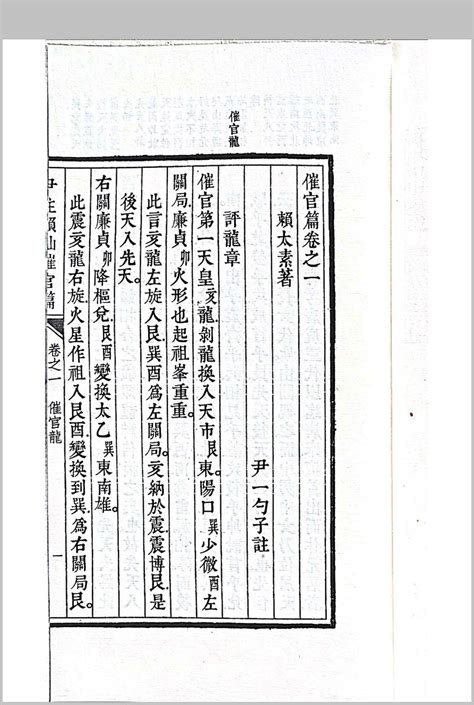 催官龍
催官篇卷之一
賴太素著
尹一勺子註
評龍章
催官第一天皇亥龍剝龍換入天市艮東陽口巽少微酉左
關局廉貞卯火形也起祖峯重重。
此言亥龍左旋入艮巽酉爲左關局。亥納於震震博艮是
後天入先天。
右關廉貞卯降樞兌艮酉變換太乙巽東南雄。
此震亥龍右旋火星作祖入艮酉變換到巽爲右關局艮。
尹註賴仙催官篇
卷之一 催官龍
一